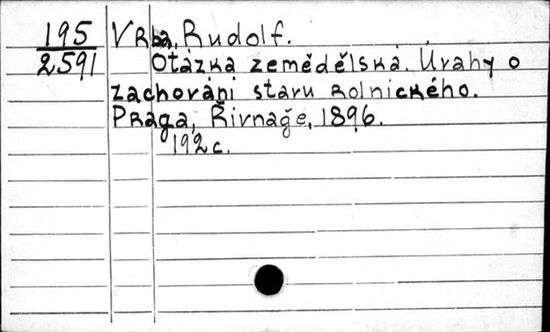 195 Vrba, Rudolf.
2591 Otázka zemědělská. Úvahy o
zachování stavu rolnického.
Praga, Řivnače, 1896.
192 c.